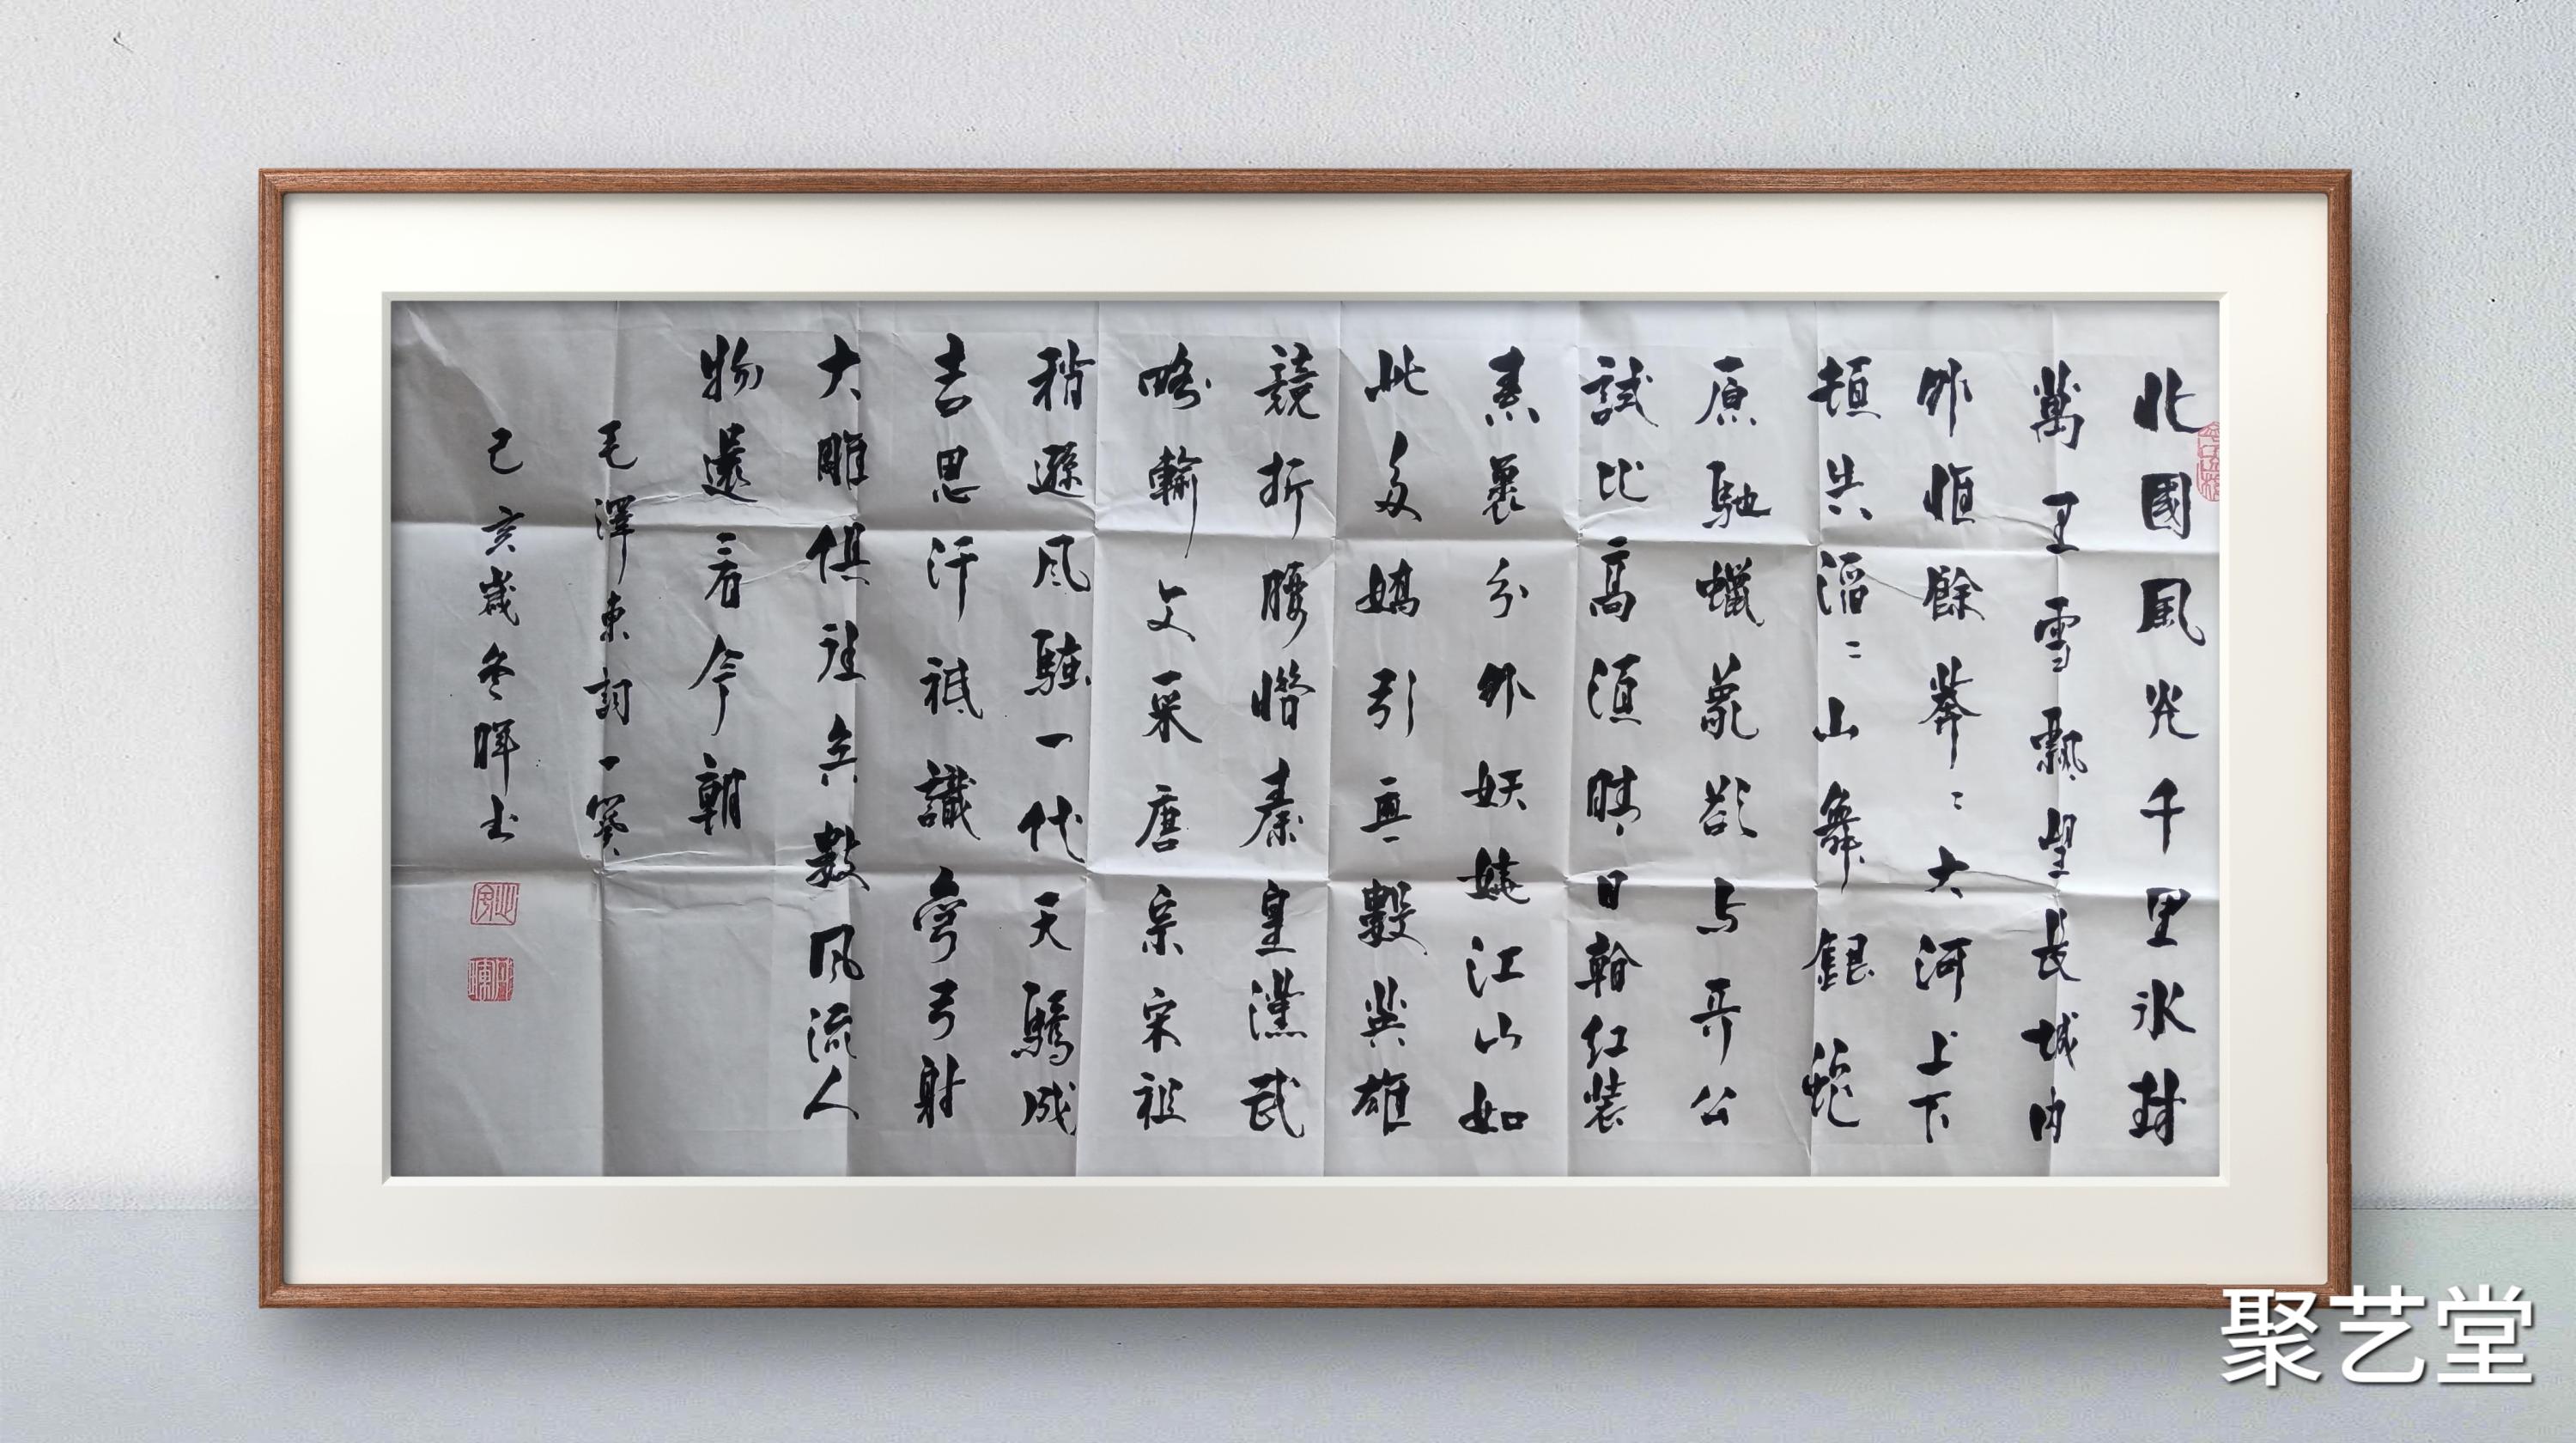 北國風光千里冰封
萬里雪飄望長城內
外惟餘莽〻大河上下
頓失滔〻山舞銀蛇
原馳蠟象欲与天公
試比高須晴日看红装
素裹分外妖嬈江山如
此多嬌引無數英雄
競折腰惜秦皇漢武
略輸文采唐宗宋祖
稍遜风騷一代天驕成
吉思汗祗識彎弓射
大雕俱往矣數风流人
物還看今朝
毛澤東詞一首
己亥歲冬暉书
聚艺堂